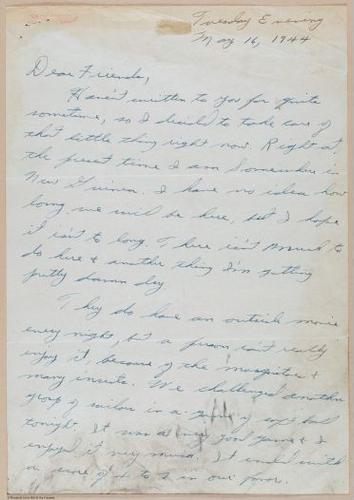 Tuesday Evening
May 16, 1944
Dear Friends,
Haven't written to you for quite
sometime, so I decided to take care of
that little thing right now. Right at
the present time I am somewhere in
New Guinea. I have no idea how
long we will be here, but I hope
it isn't to long. There isn't much to
do here & another thing I'm getting
pretty damn dry.
They do have an outside movie
every night, but a person can't really
enjoy it because of the mosquitos &
many insects. We challenged another
group of sailors in a game of soft ball
tonight. It was a very good game & I
enjoyed it very much. It ended with
a score of to in our favor.